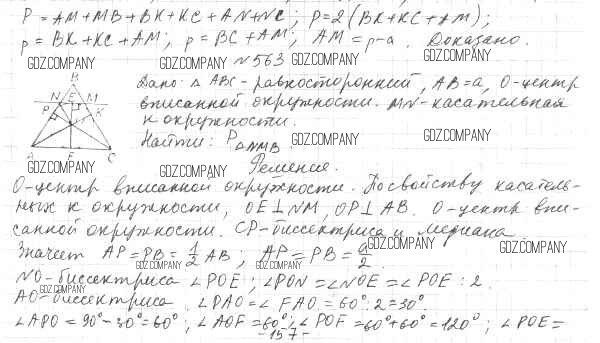 P = AM + MB + BK + KC + AN + NC; P = 2(BK + KC + AM);
p = BK + KC + AM; p = BC + AM; AM = p - a. Доказано.
GDZ.COMPANY №563 GDZ.COMPANY GDZ.COMPANY
Дано: Δ ABC - равносторонний, AB = a, O - центр
вписанной окружности. MN - касательная
к окружности.
GDZ.COMPANY GDZ.COMPANY
Найти: P ΔNMB.
B
N E M
P K
A F C
GDZ.COMPANY GDZ.COMPANY
Решение.
O - центр вписанной окружности. По свойству касатель-
ных к окружности, OE ⊥ NM, OP ⊥ AB. O - центр впи-
санной окружности. CP - биссектриса и медиана.
GDZ.COMPANY GDZ.COMPANY
Значит AP = PB = 1/2 AB, AP = PB = a/2.
GDZ.COMPANY GDZ.COMPANY
NO - биссектриса ∠POE; ∠PON = ∠NOE = ∠POE : 2.
GDZ.COMPANY
AO - биссектриса. ∠PAO = ∠FAO = 60° : 2 = 30°
∠APO = 90° - 30° = 60°; ∠AOF = 60°; ∠POF = 60° + 60° = 120°; ∠POE =
- 157 -